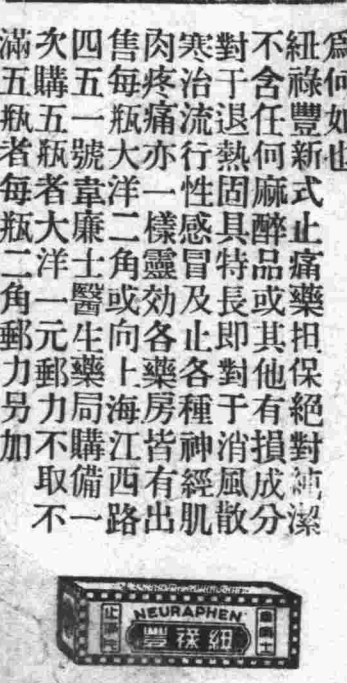 爲何如也
紐祿豐新式止痛藥担保絕對純潔
不含任何麻醉品或其他有損成分
對于退熱固具特長即對于消風散
寒治流行性感冒及止各種神經肌
肉疼痛亦一樣靈効各藥房皆有出
售每瓶大洋二角或向上海江西路
四五一號韋廉士醫生藥局購備一
次購五瓶者大洋一元郵力不取不
滿五瓶者每瓶二角郵力另加
NEURAPHEN
紐祿豐